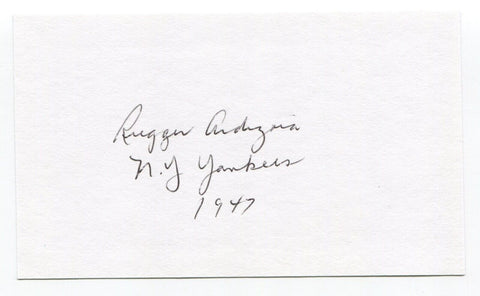 Rugger Ardizoia
N.Y Yankees
1947